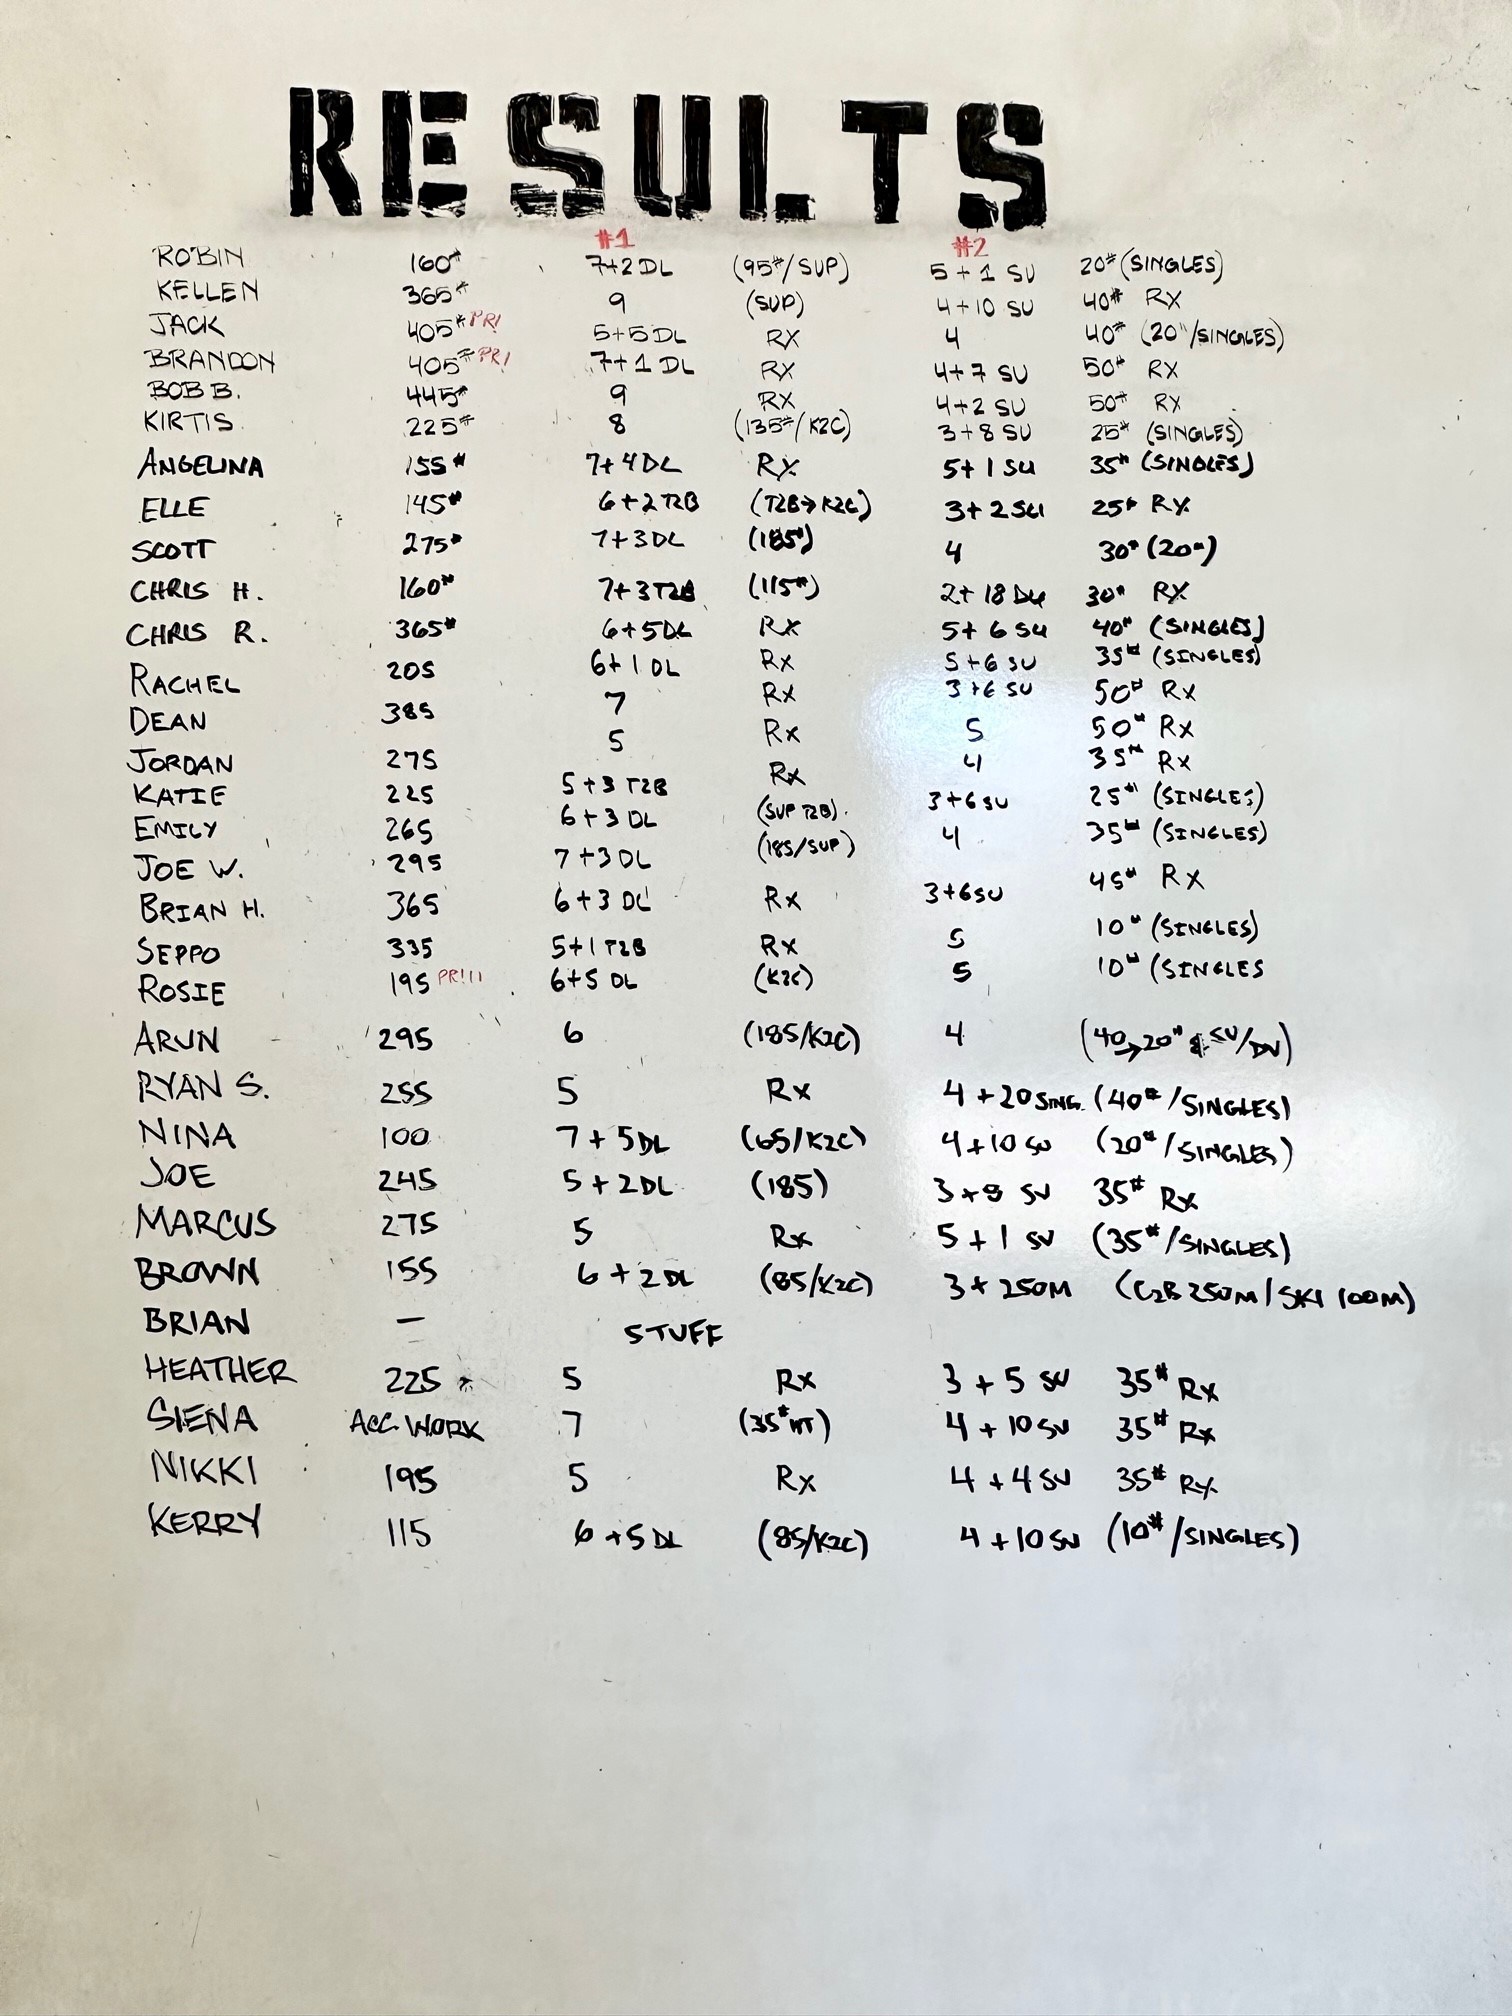 RESULTS
#1 #2
ROBIN 160# 7+2 DL (95#/SUP) 5+1 SU 20# (SINGLES)
KELLEN 365# 9 (SUP) 4+10 SU 40# RX
JACK 405# PR! 5+5 DL RX 4 40# (20"/SINGLES)
BRANDON 405# PR! 7+1 DL RX 4+7 SU 50# RX
BOB B. 445# 9 RX 4+2 SU 50# RX
KIRTIS 225# 8 (135#/K2C) 3+8 SU 25# (SINGLES)
ANGELINA 155# 7+4 DL RX 5+1 SU 35# (SINGLES)
ELLE 145# 6+2 T2B (T2B→K2C) 3+2 SU 25# RX
SCOTT 275# 7+3 DL (185#) 4 30# (20")
CHRIS H. 160# 7+3 T2B (115#) 2+18 DU 30# RX
CHRIS R. 365# 6+5 DL RX 5+6 SU 40# (SINGLES)
RACHEL 205 6+1 DL RX 5+6 SU 35# (SINGLES)
DEAN 385 7 RX 3+6 SU 50# RX
JORDAN 275 5 RX 5 50# RX
KATIE 225 5+3 T2B RX 4 35# RX
EMILY 265 6+3 DL (SUP T2B). 3+6 SU 25# (SINGLES)
JOE W. 295 7+3 DL (185/SUP) 4 35# (SINGLES)
BRIAN H. 365 6+3 DL RX 3+6 SU 45# RX
SEPPO 335 5+1 T2B RX 5 10# (SINGLES)
ROSIE 195 PR!!! 6+5 DL (K2C) 5 10# (SINGLES
ARUN 295 6 (185/K2C) 4 (40→20# & SU/DU)
RYAN S. 255 5 RX 4+20 SING. (40#/SINGLES)
NINA 100 7+5 DL (65/K2C) 4+10 SU (20#/SINGLES)
JOE 245 5+2 DL (185) 3+8 SU 35# RX
MARCUS 275 5 RX 5+1 SU (35#/SINGLES)
BROWN 155 6+2 DL (85/K2C) 3+250M (C2B 250M/SKI 100M)
BRIAN — STUFF
HEATHER 225 5 RX 3+5 SU 35# RX
SIENA ACC. WORK 7 (35# WT) 4+10 SU 35# RX
NIKKI 195 5 RX 4+4 SU 35# RX
KERRY 115 6+5 DL (85/K2C) 4+10 SU (10#/SINGLES)